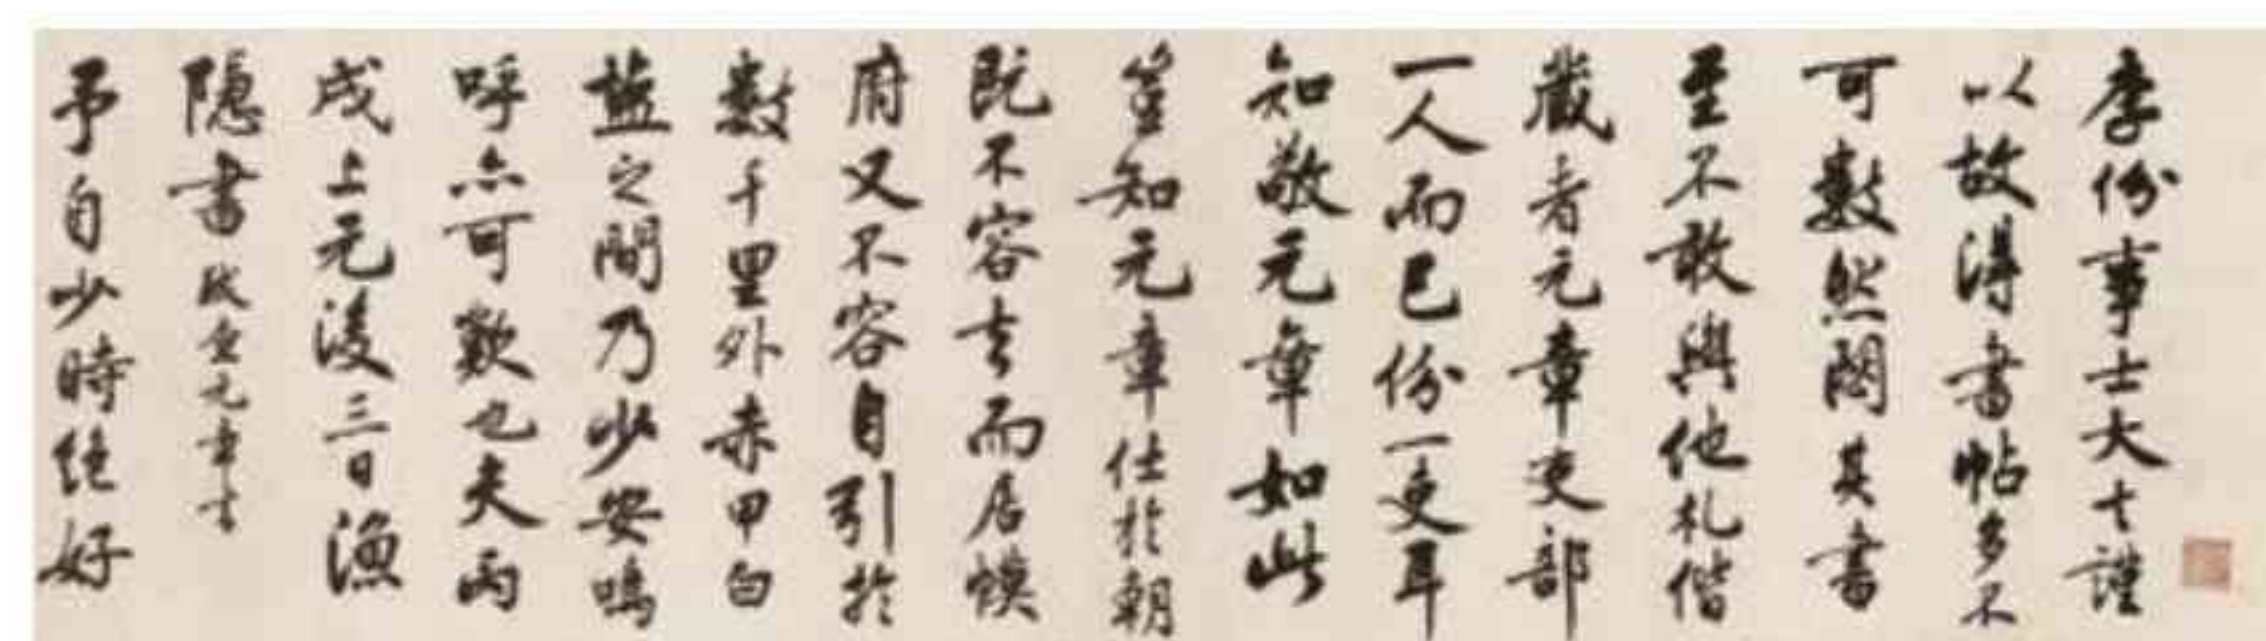 李份事士大夫謹
以故得書帖多不
可數然閟其書
至不敢與他札偕
藏者元章吏部
一人而已份一吏耳
知敬元章如此
豈知元章仕於朝
既不容去而居幙
府又不容自引於
數千里外赤甲白
鹽之間乃少安嗚
呼亦可歎也夫丙
戌上元後三日漁
隱書 跋金元章書
予自少時絕好